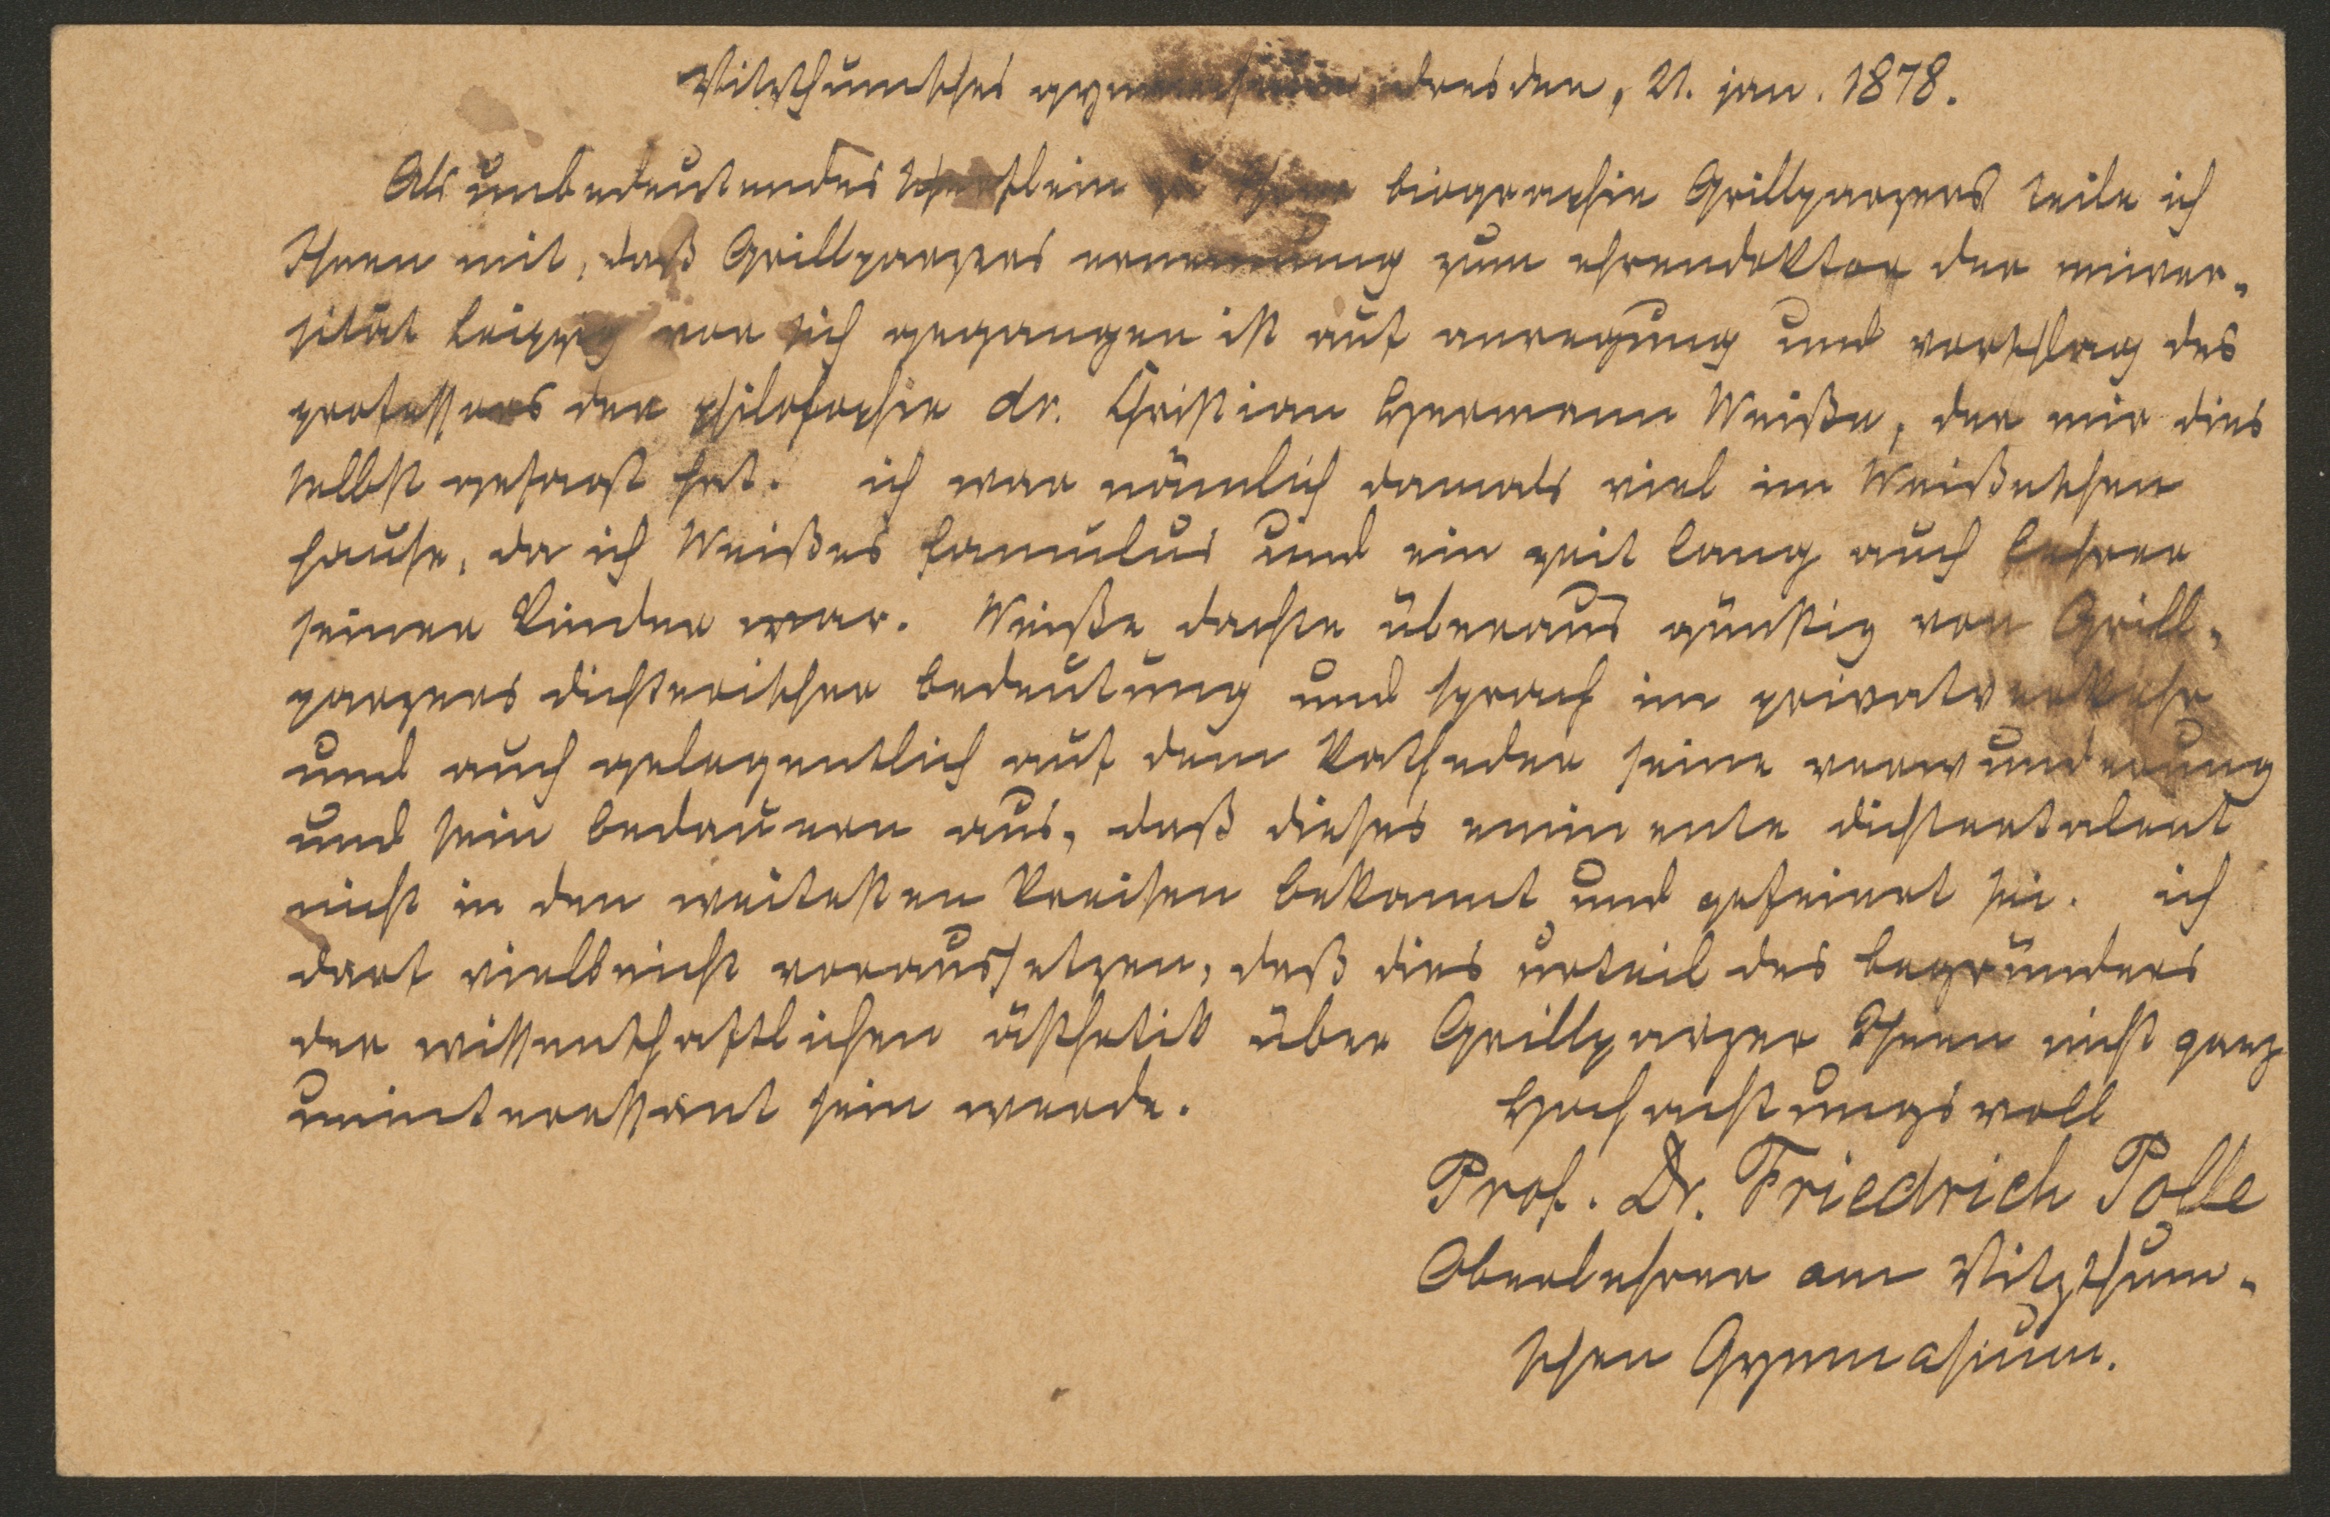 Vitzthumsches gymnasium, dresden, 21. jan. 1878.
Als unbedeutendes Scherflein zu Ihrer biographie Grillparzers teile ich
Ihnen mit, daß Grillparzers ernennung zum ehrendoktor der univer-
sität Leipzig vor sich gegangen ist auf anregung und vorschlag des
professors der philosophie dr. Christian Hermann Weiße, der mir dies
selbst gesagt hat. ich war nämlich damals viel im Weißeschen
hause, da ich Weißes famulus und ein zeit lang auch lehrer
seiner kinder war. Weiße dachte überaus günstig von Grill-
parzers dichterischer bedeutung und sprach im privatverkehr
und auch gelegentlich auf dem katheder seine verwunderung
und sein bedauern aus, daß dieses eminente dichtertalent
nicht in den weitesten kreisen bekannt und gefeiert sei. ich
darf vielleicht voraussetzen, daß dies urteil des begründers
der wissenschaftlichen ästhetik über Grillparzer Ihnen nicht ganz
uninteressant sein werde. Hochachtungsvoll
Prof. Dr. Friedrich Polle
Oberlehrer am Vitzthum-
schen Gymnasium.